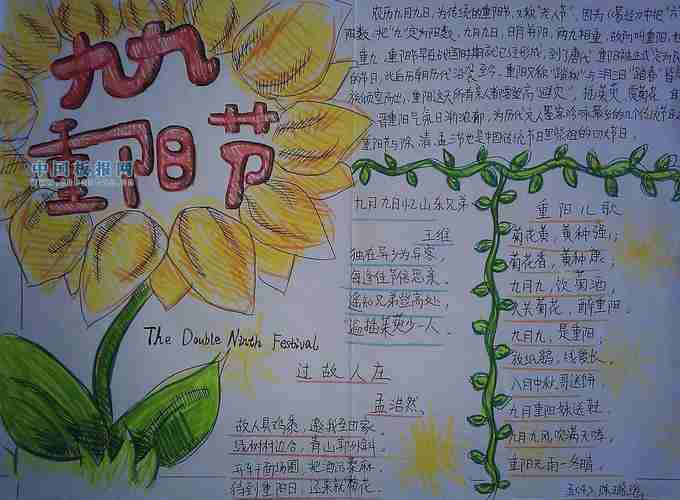 九九
重阳节
中国板报网
农历九月九日，为传统的重阳节，又称"老人节"。因为《易经》中把"六"
阳数，把"九"定为阳数，九月九日，日月并阳，两九相重，故而叫重阳，也
重九，重阳节早在战国时期就已经形成，到了唐代，重阳被正式定为民
的节日，此后历朝历代沿袭至今。重阳又称"踏秋"与三月三日"踏春"皆是
族倾室而出，重阳这天所有亲人都要登高"避灾"，插茱萸、赏菊花。自
重阳节与除、清、盂三节也是中国传统节日里祭祖的四大节日。
九月九日忆山东兄弟
王维
独在异乡为异客，
每逢佳节倍思亲。
遥知兄弟登高处，
遍插茱萸少一人。
重阳儿歌
菊花黄，黄种强；
菊花香，黄种康；
九月九，饮菊酒，
人共菊花，醉重阳。
九月九，是重阳，
放纸鹞，线爱长，
八月中秋哥送饼，
九月重阳妹送鞋。
九月九风吹满天啸，
重阳无雨一冬晴。
The Double Ninth Festival
过故人庄
孟浩然
故人具鸡黍，邀我至田家。
绿树村边合，青山郭外斜。
开轩面场圃，把酒话桑麻。
待到重阳日，还来就菊花。